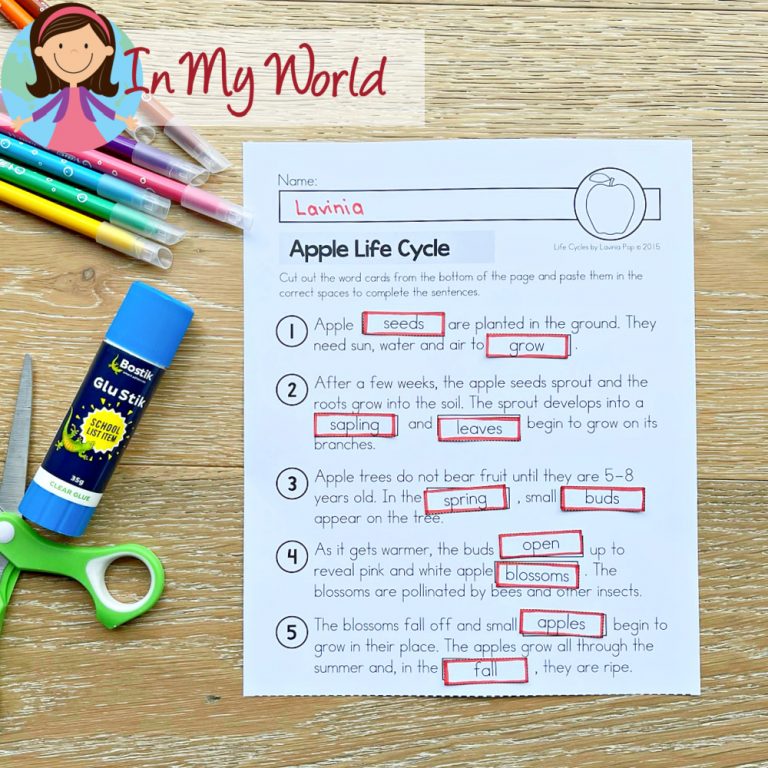 In My World
Name:
Lavinia
Life Cycles by Lavinia Pop © 2015
Apple Life Cycle
Cut out the word cards from the bottom of the page and paste them in the
correct spaces to complete the sentences.
1 Apple seeds are planted in the ground. They
need sun, water and air to grow .
2 After a few weeks, the apple seeds sprout and the
roots grow into the soil. The sprout develops into a
sapling and leaves begin to grow on its
branches.
3 Apple trees do not bear fruit until they are 5-8
years old. In the spring , small buds
appear on the tree.
4 As it gets warmer, the buds open up to
reveal pink and white apple blossoms . The
blossoms are pollinated by bees and other insects.
5 The blossoms fall off and small apples begin to
grow in their place. The apples grow all through the
summer and, in the fall , they are ripe.
Bostik
Glu Stik
SCHOOL
LIST ITEM
35g
CLEAR GLUE